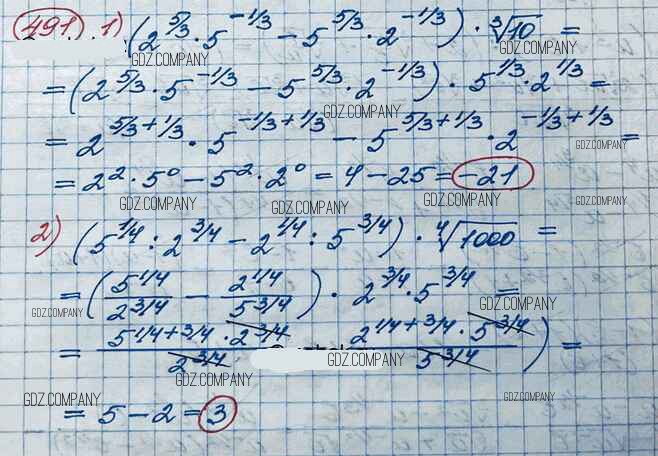 491. 1) (2^{5/3} · 5^{-1/3} - 5^{5/3} · 2^{-1/3}) · ∛10 =
GDZ.COMPANY GDZ.COMPANY
= (2^{5/3} · 5^{-1/3} - 5^{5/3} · 2^{-1/3}) · 5^{1/3} · 2^{1/3} =
GDZ.COMPANY
= 2^{5/3+1/3} · 5^{-1/3+1/3} - 5^{5/3+1/3} · 2^{-1/3+1/3} =
GDZ.COMPANY GDZ.COMPANY
= 2² · 5⁰ - 5² · 2⁰ = 4 - 25 = -21
GDZ.COMPANY GDZ.COMPANY GDZ.COMPANY
2) (5^{1/4} : 2^{3/4} - 2^{1/4} : 5^{3/4}) · ∜1000 =
GDZ.COMPANY GDZ.COMPANY
= (5^{1/4}/2^{3/4} - 2^{1/4}/5^{3/4}) · 2^{3/4} · 5^{3/4} =
GDZ.COMPANY GDZ.COMPANY
= 5^{1/4+3/4} · 2^{3/4}/2^{3/4} 2^{1/4+3/4} · 5^{3/4}/5^{3/4}) =
GDZ.COMPANY GDZ.COMPANY
GDZ.COMPANY GDZ.COMPANY
= 5 - 2 = 3